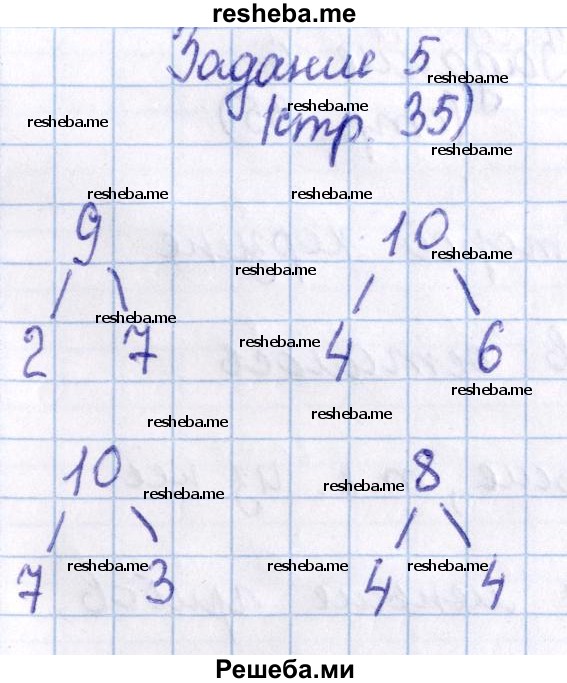 resheba.me
Задание 5
resheba.me
resheba.me
resheba.me
(стр. 35)
resheba.me
resheba.me
resheba.me
9
10
resheba.me
resheba.me
resheba.me
2
7
resheba.me
4
6
resheba.me
resheba.me
resheba.me
10
8
resheba.me
resheba.me
7
resheba.me
3
resheba.me
4
resheba.me
4
Решеба.ми